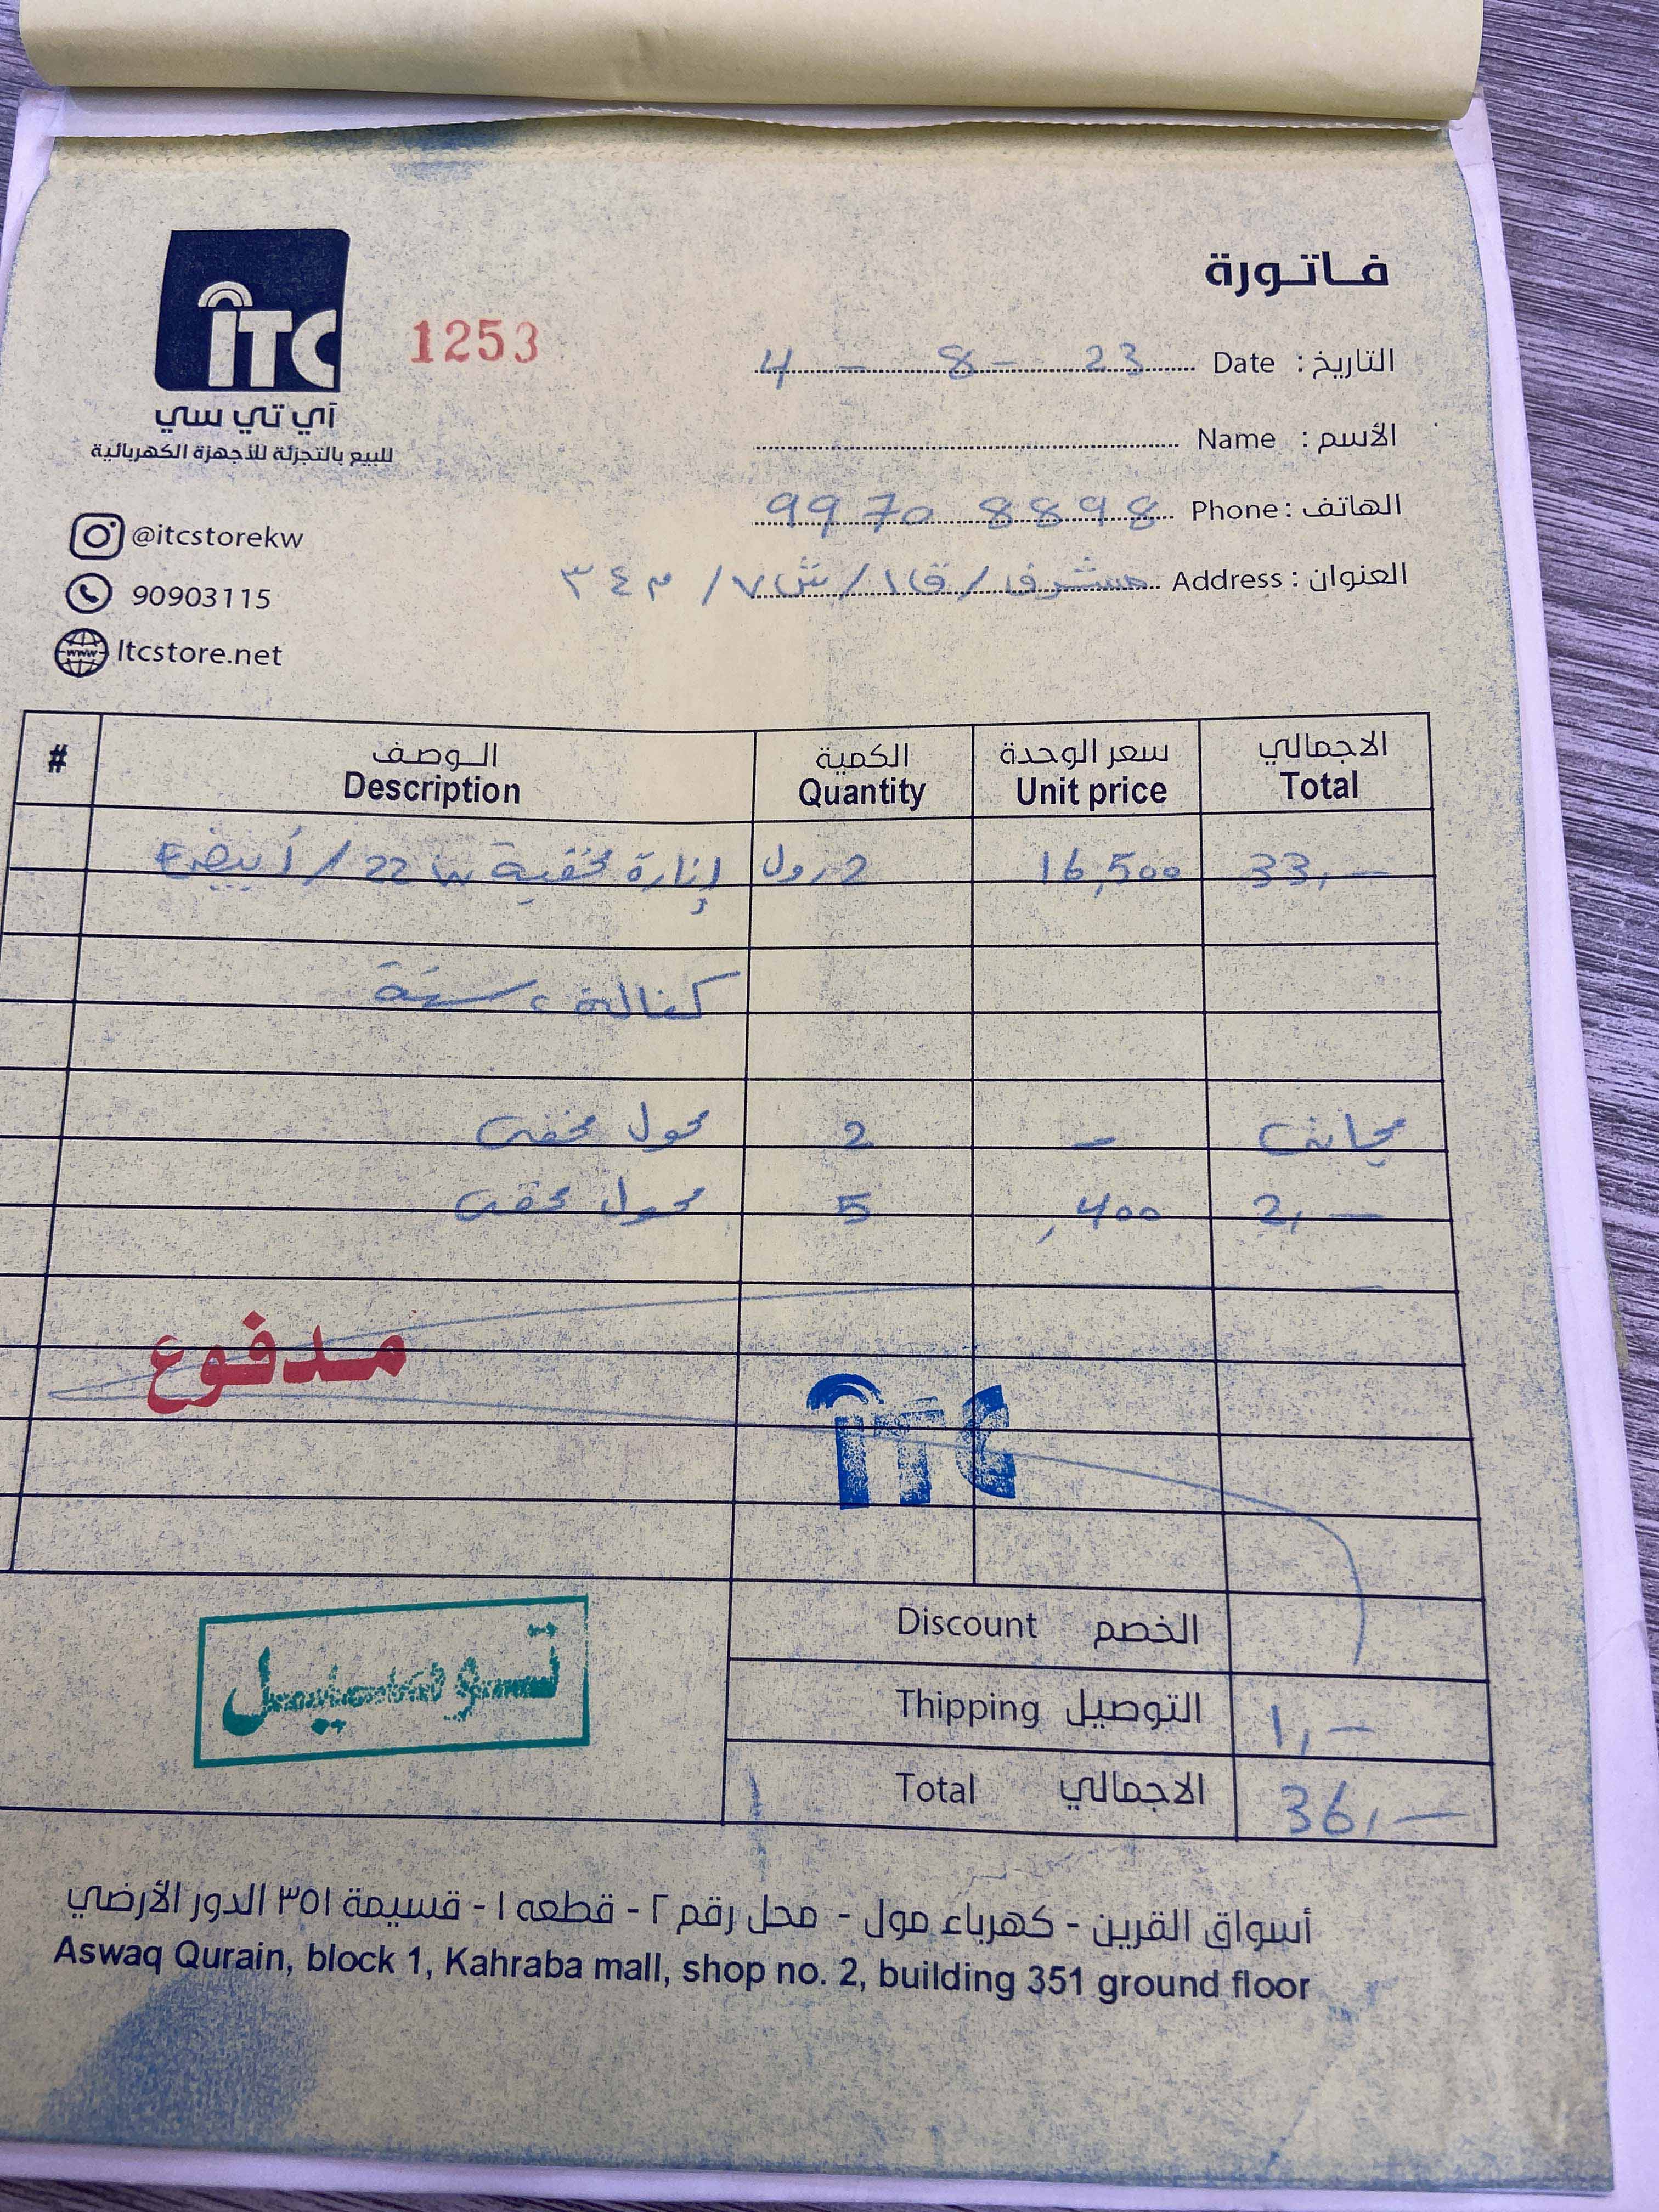 فاتورة
iTC
1253
آي تي سي
للبيع بالتجزئة للأجهزة الكهربائية
التاريخ : Date 4 - 8 - 23
الأسم : Name
الهاتف : Phone 9970 8898
العنوان : Address مشرف / ق١ / ش٧ / م ٣٤
@itcstorekw
90903115
www
Itcstore.net
# الوصف الكمية سعر الوحدة الاجمالي
Description Quantity Unit price Total
إنارة مخفية 22 / أبيض 2 رول 16,500 33,—
كفالة سنة
محول مخفي 2 — مجاني
محول مخفي 5 ,400 2,—
مدفوع
iTC
Discount الخصم
توصيل
Thipping التوصيل 1,—
Total الاجمالي 36,—
أسواق القرين - كهرباء مول - محل رقم ٢ - قطعه ١ - قسيمة ٣٥١ الدور الأرضي
Aswaq Qurain, block 1, Kahraba mall, shop no. 2, building 351 ground floor